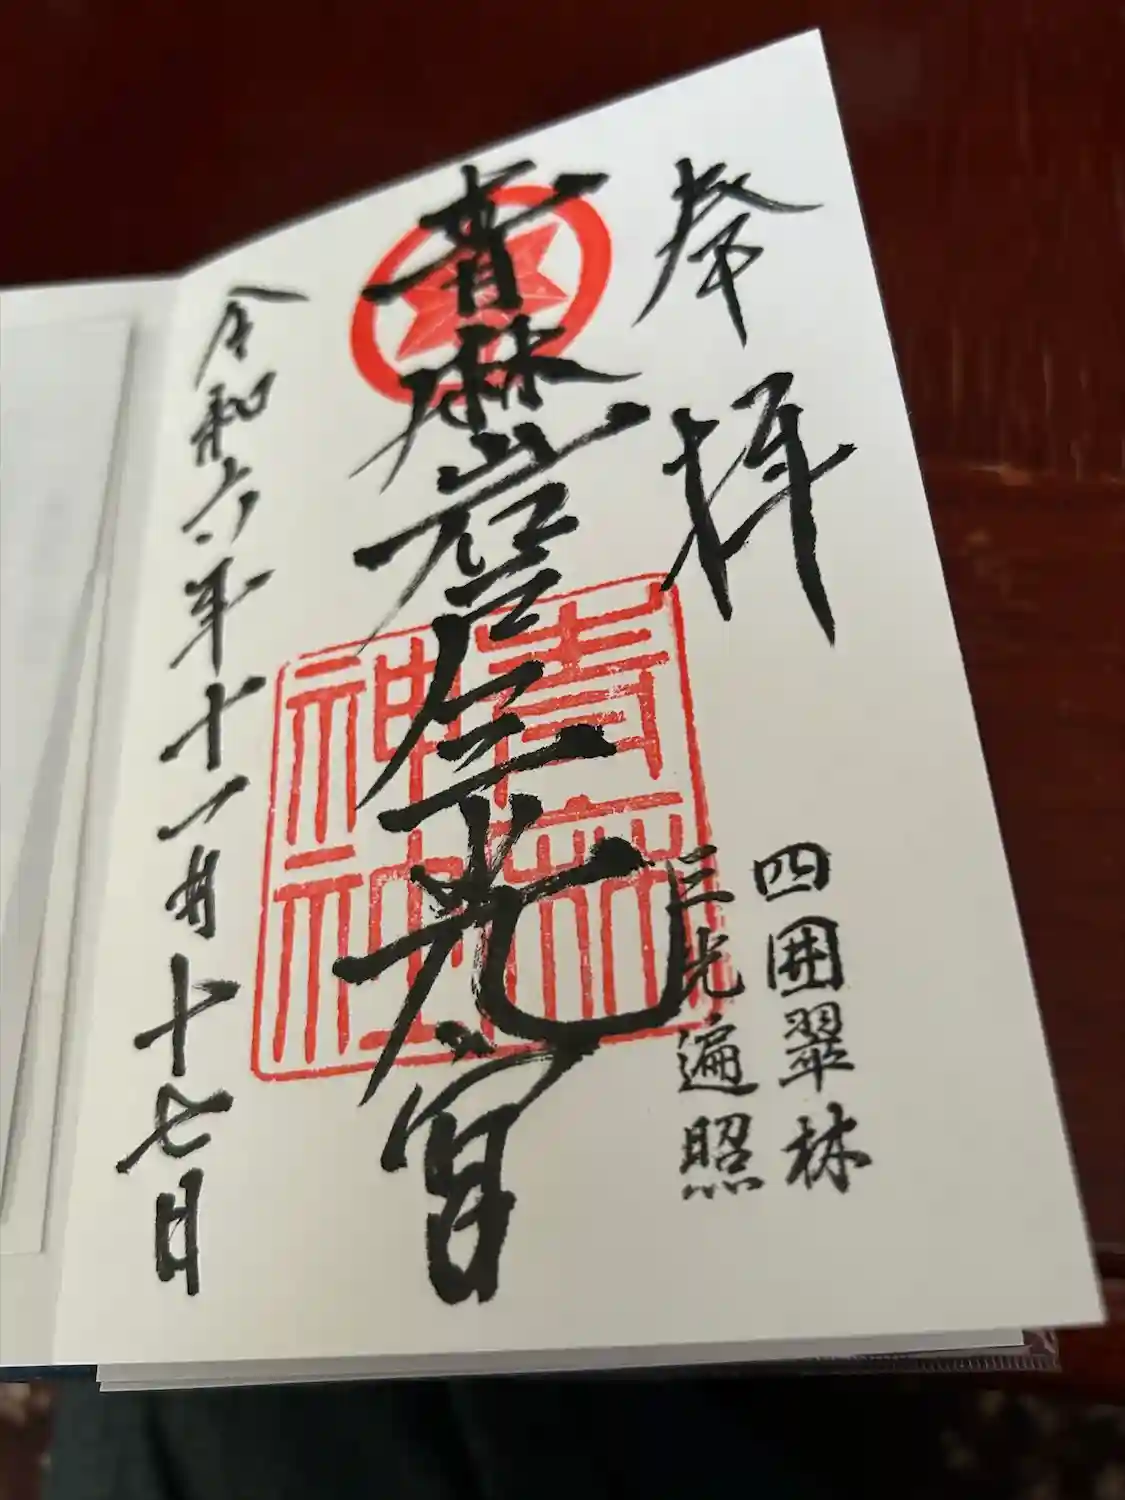 奉拝
四囲翠林
三光遍照
青麻岩戸三光宮
青麻
神社
令和六年十一月十七日